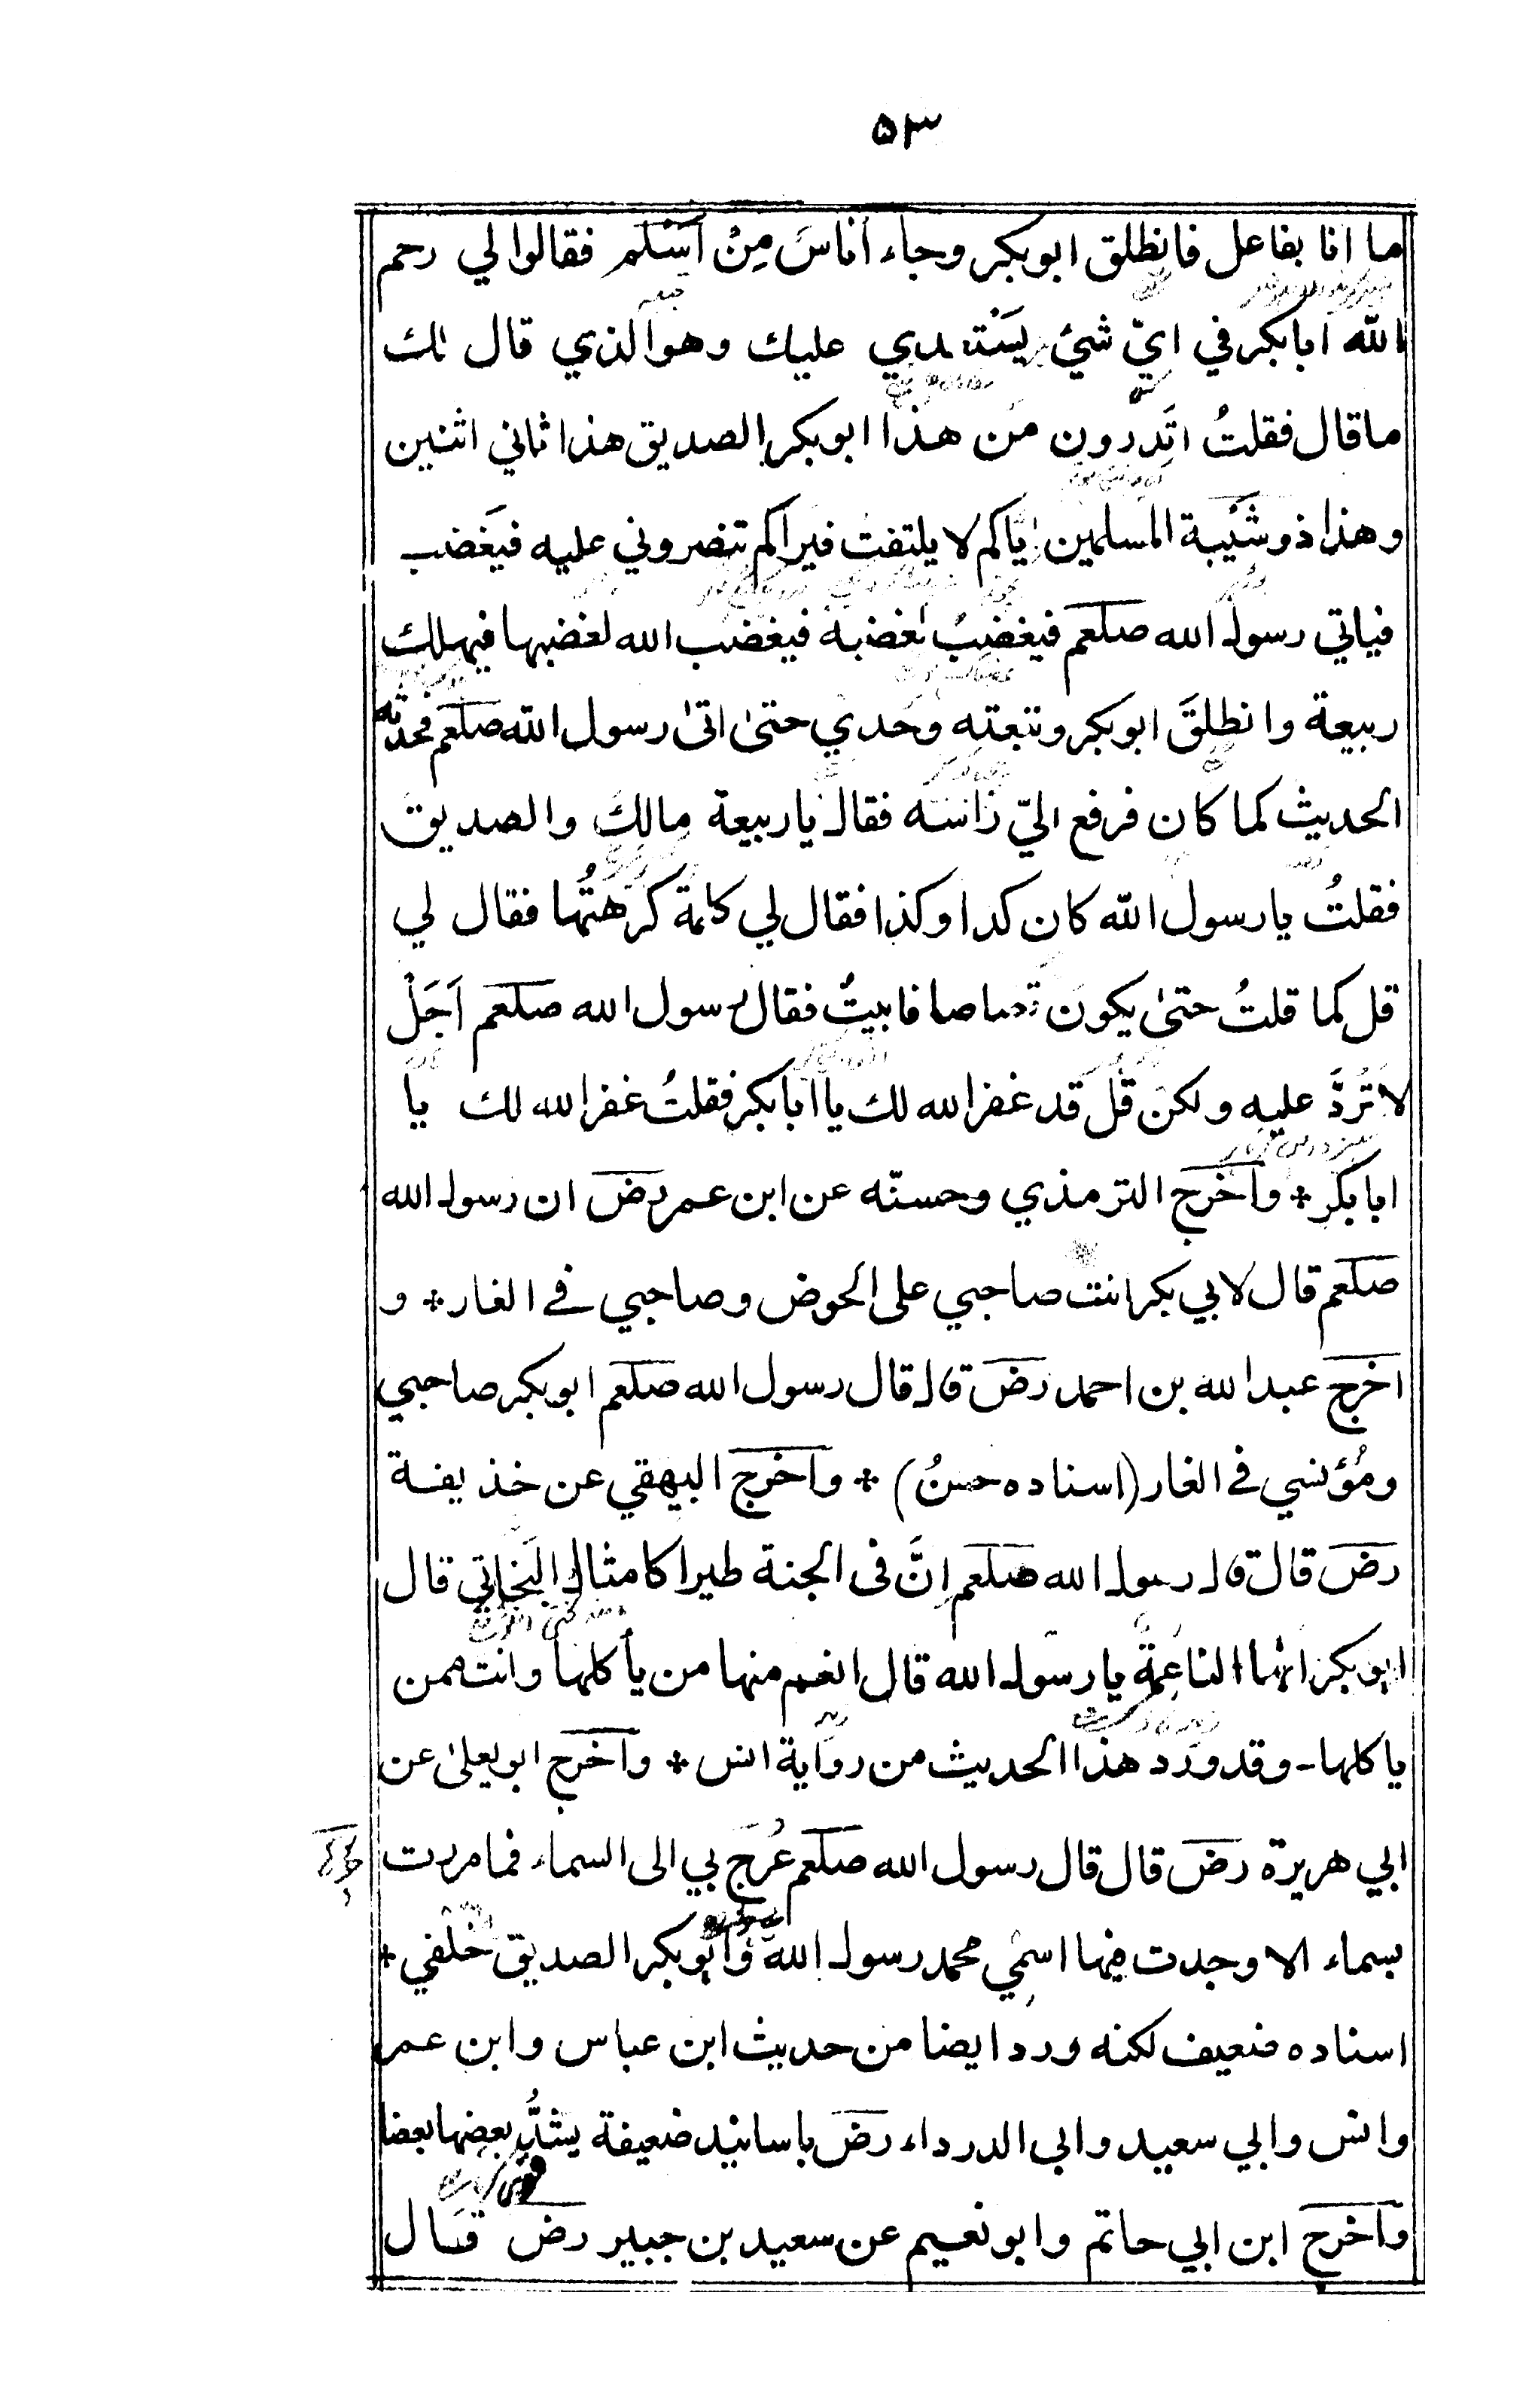 ۵۳
ما انا بفاعل فانطلق ابوبكر وجاء أناسَ مِنْ اَسْلَم فقالوا لي رحم
الله ابابكر في ايّ شئ يَسْتعدي عليك وهو الذي قال لك
ما قال فقلتُ اَتَدرون مَن هذا ابوبكر الصديق هذا ثاني اثنين
وهذا ذو شَيْبة المسلمين اِيّاكم لا يلتفت فيَراكم تنصروني عليه فيَغضب
فياتي رسول الله صلعم فيغضبُ لغضبه فيغضب الله لغضبهما فيهلك
ربيعة وانطلقَ ابوبكر وتبعته وَحدي حتىٰ اتىٰ رسول الله صلعم فحدثه
الحديث كما كان فرفع اليّ راسه فقال يا ربيعة مالك والصديق
فقلتُ يا رسول الله كان كذا وكذا فقال لي كلمة كرهتُها فقال لي
قل كما قلتُ حتىٰ يكون قصاصا فابيتُ فقال رسول الله صلعم اَجَلْ
لا تَرُدَّ عليه ولكن قُل قد غفر الله لك يا ابابكر فقلتُ غفر الله لك يا
ابابكر * واَخرج الترمذي وحسنّه عن ابن عمر رضَ ان رسول الله
صلعم قال لابي بكر انت صاحبي على الحوض وصاحبي في الغار * و
اخرج عبد الله بن احمد رضَ قال قال رسول الله صلعم ابوبكر صاحبي
ومُؤنسي في الغار (اسناده حسنُ) * واخرج البيهقي عن خذيفة
رضَ قال قال رسول الله صلعم اِنَّ فى الجنة طيرا كامثال البَخاتي قال
ابوبكر انها الناعِمة يا رسول الله قال انعم منها من يأكلها وانت ممن
ياكلها- وقد ورد هذا الحديث من رواية انس * واخرج ابو يعلىٰ عن
ابي هريرة رضَ قال قال رسول الله صلعم عُرِجَ بي الى السماء فما مررت
بسماء الا وجدت فيها اسمي محمد رسول الله وابوبكر الصديق خلفي *
اسناده ضعيف لكنه ورد ايضا من حديث ابن عباس وابن عمر
وانس وابي سعيد وابى الدرداء رضَ باسانيد ضعيفة يشدُّ بعضها بعضا
واخرج ابن ابي حاتم وابو نعيم عن سعيد بن جبير رضَ قال